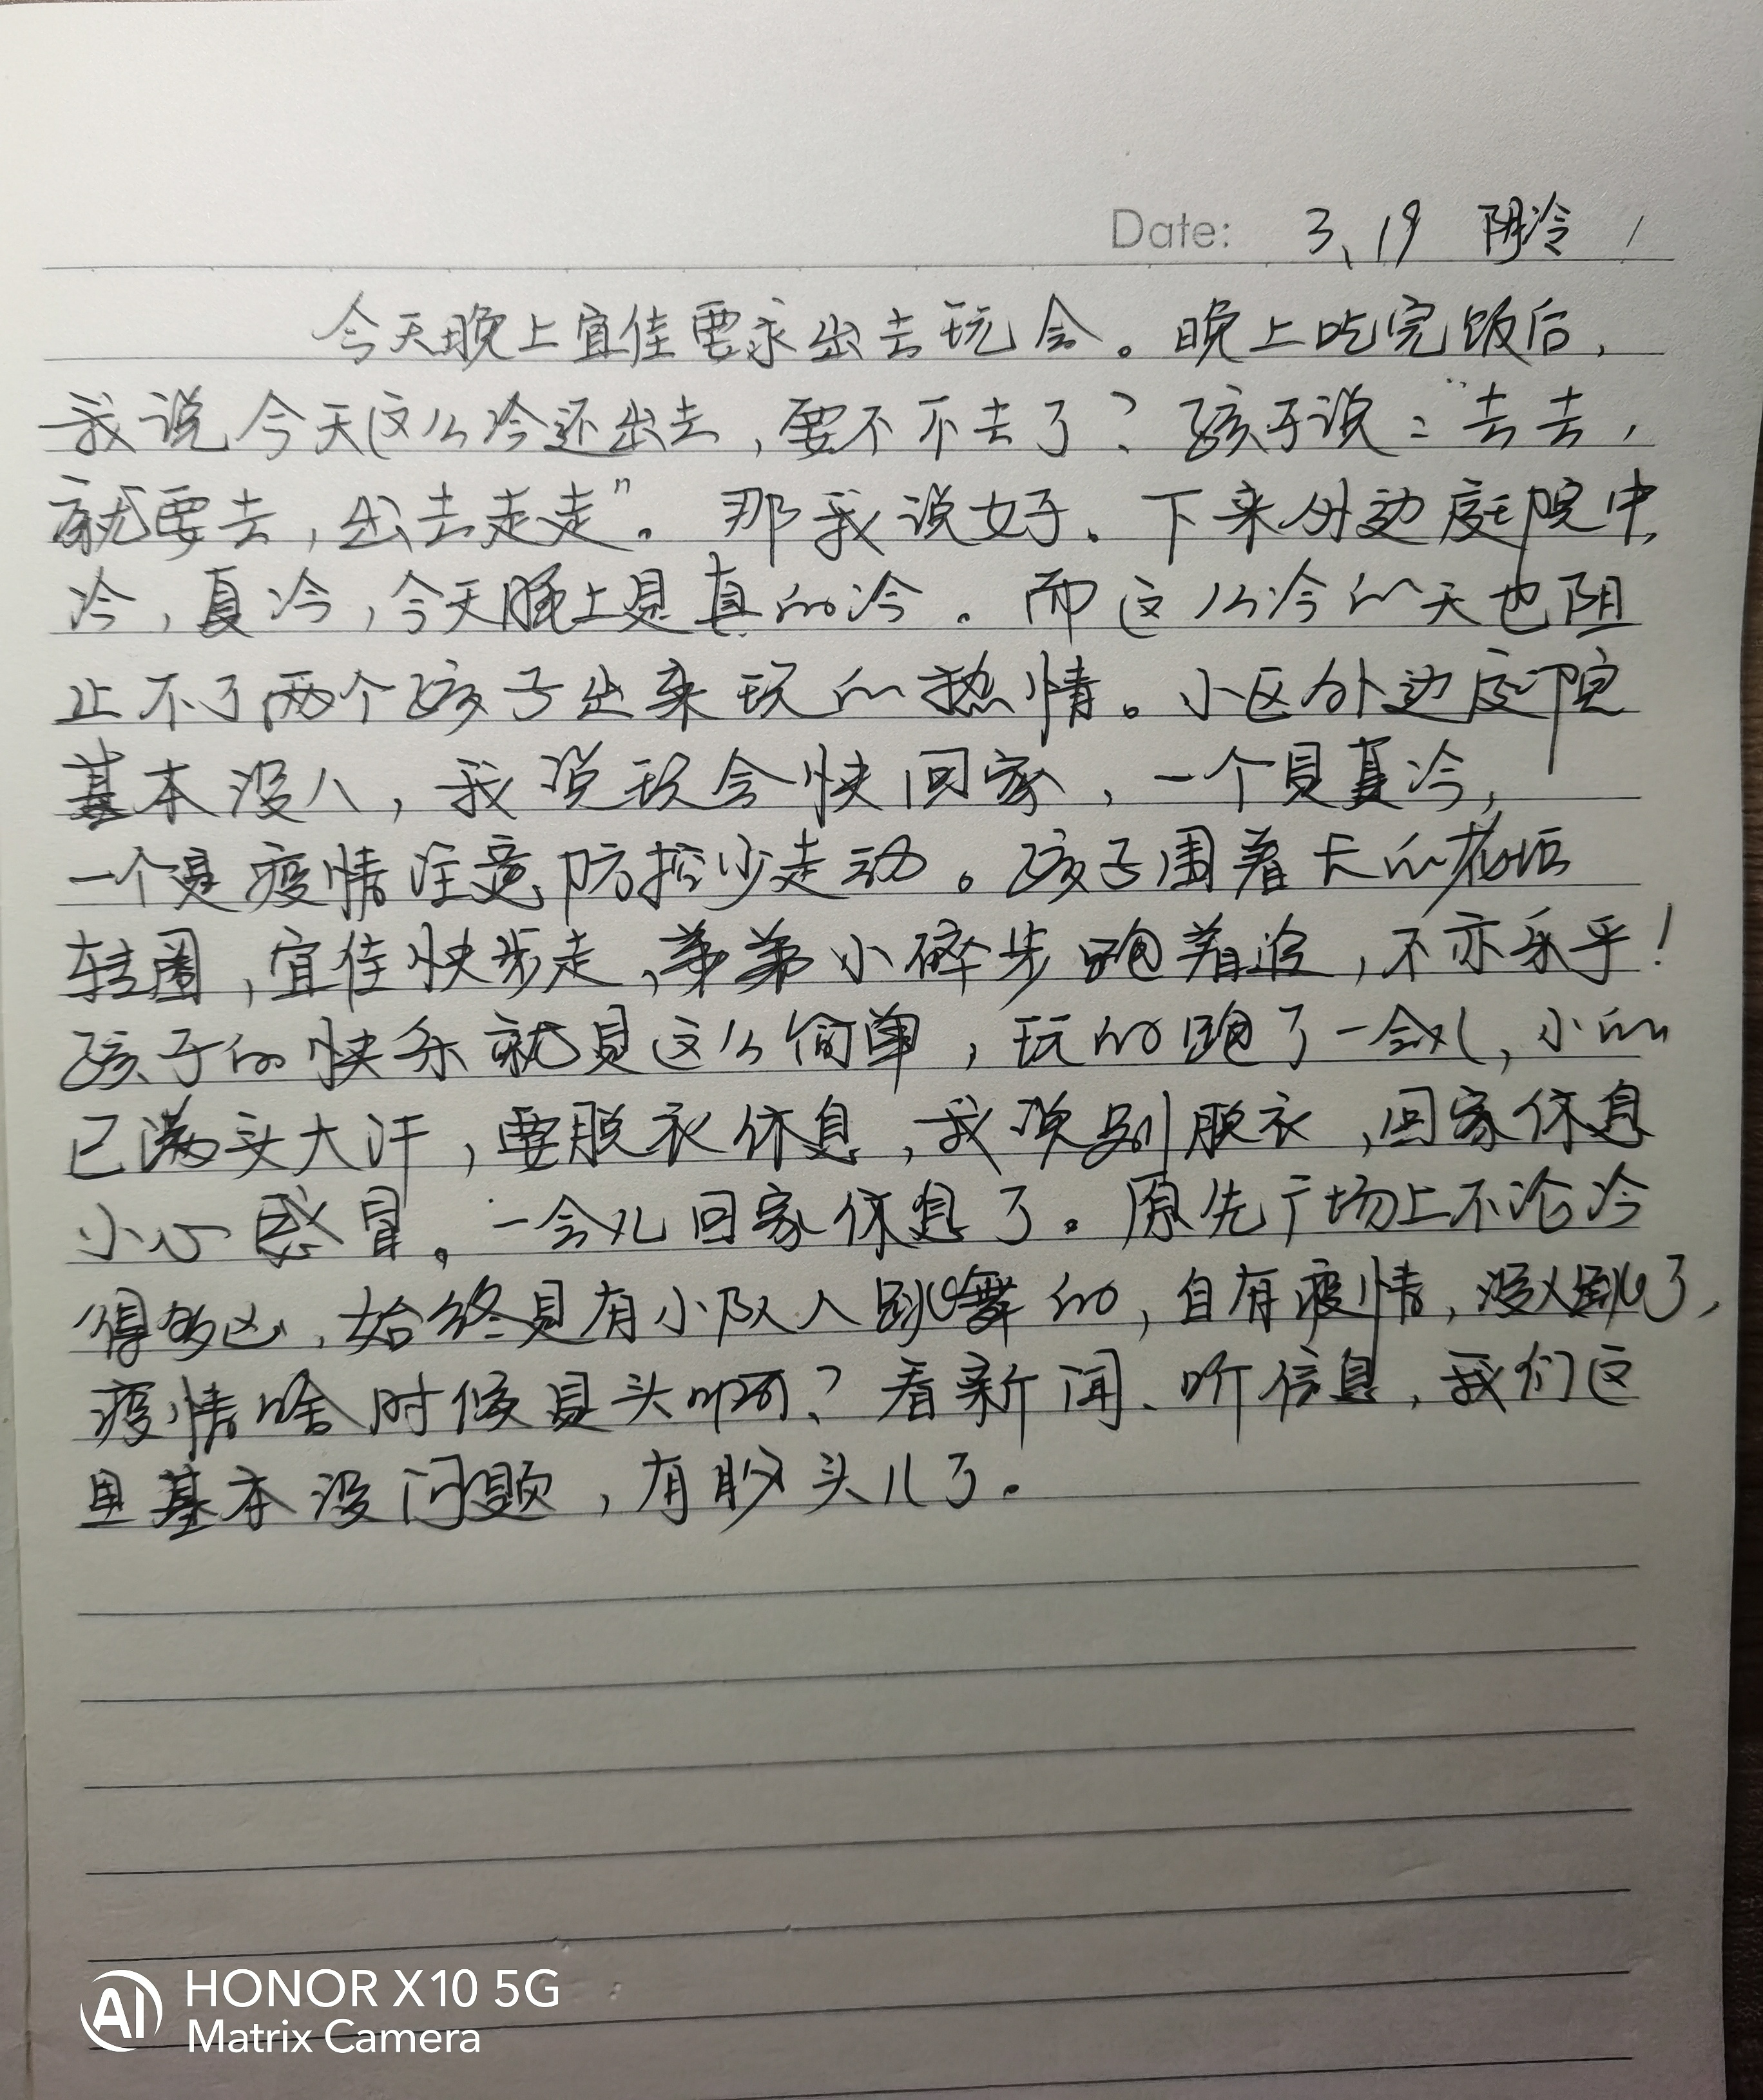 Date: 3、19 阴冷
今天晚上宜佳要求出去玩会。晚上吃完饭后,
我说今天这么冷还出去,要不不去了?孩子说:“去去,
就要去,出去走走”。那我说好、下来外边庭院中,
冷,真冷,今天晚上是真的冷。而这么冷的天也阻
止不了两个孩子出来玩的热情。小区外边庭院
基本没人,我说玩会快回家,一个是真冷,
一个是疫情注意防控少走动。孩子围着大的花坛
转圈,宜佳快步走,弟弟小碎步跑着追,不亦乐乎!
孩子的快乐就是这么简单,玩的跑了一会儿,小的
已满头大汗,要脱衣休息,我说别脱衣,回家休息
小心感冒。一会儿回家休息了。原先广场上不论冷
得多凶,始终是有小队人跳舞的,自有疫情,没人跳了,
疫情啥时候是头啊?看新闻、听信息,我们这
里基本没问题,有盼头儿了。
HONOR X10 5G
Matrix Camera
AI